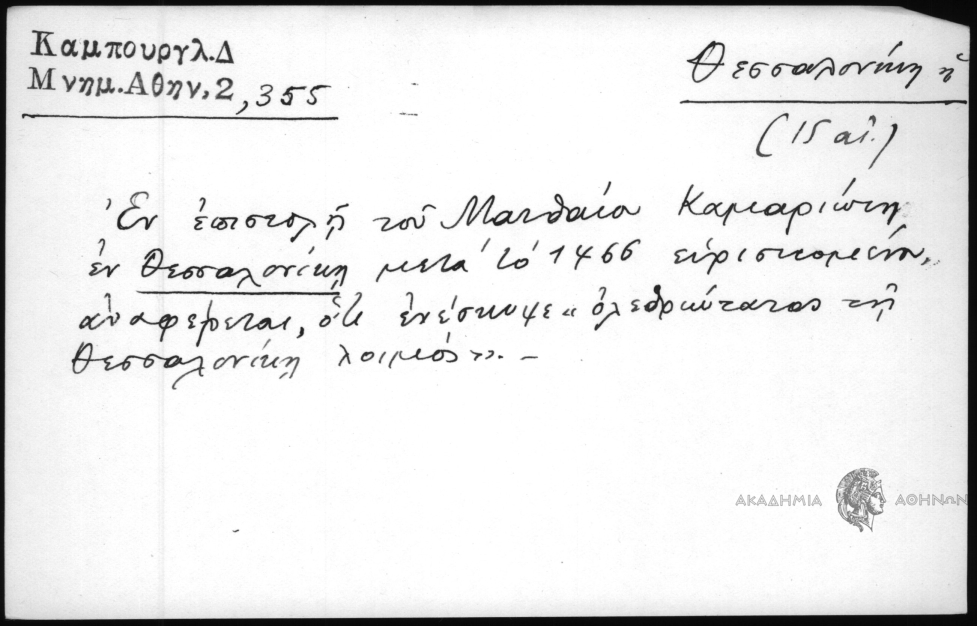 Καμπουργλ.Δ
Μνημ.Αθην,2,355
Θεσσαλονίκη ἡ
(15 αἰ.)
Ἐν ἐπιστολῇ τοῦ Ματθαίου Καμαριώτη
ἐν Θεσσαλονίκῃ μετὰ τὸ 1466 εὑρισκομένου,
ἀναφέρεται, ὅτι ἐνέσκηψε «ὀλεθριώτατος τῇ
Θεσσαλονίκῃ λοιμός». –
ΑΚΑΔΗΜΙΑ ΑΘΗΝΩΝ